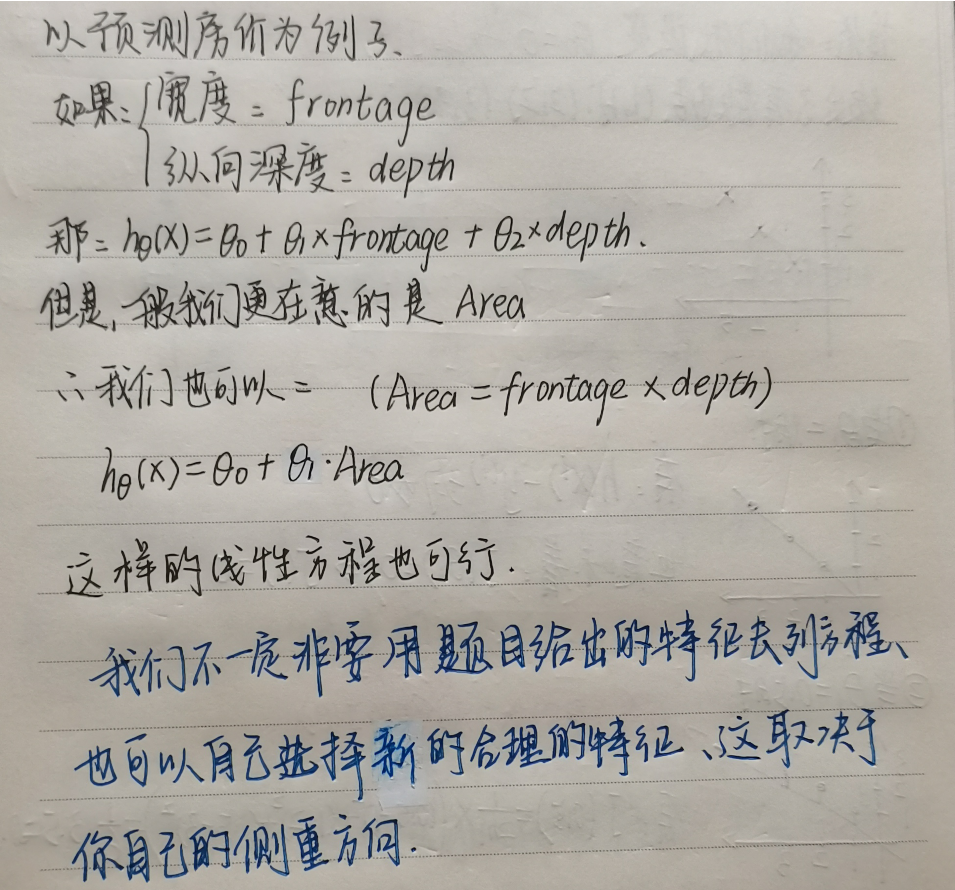 以预测房价为例子、
如果:{宽度 = frontage
纵向深度 = depth
那: hθ(x) = θ0 + θ1 × frontage + θ2 × depth.
但是, 一般我们更在意的是 Area
∴ 我们也可以: (Area = frontage × depth)
hθ(x) = θ0 + θ1·Area
这样的线性方程也可行.
我们不一定非要用题目给出的特征去列方程、
也可以自己选择新的合理的特征、这取决于
你自己的侧重方向.